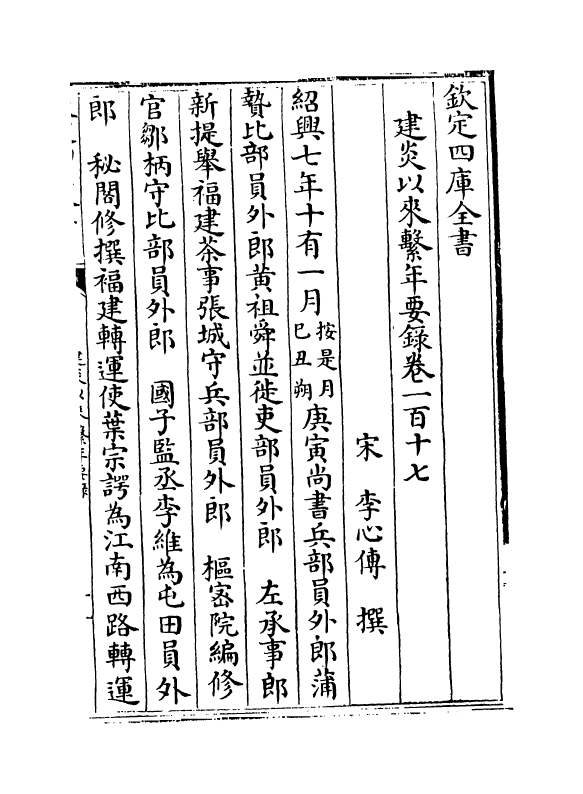 欽定四庫全書
建炎以來繫年要錄卷一百十七
宋 李心傳 撰
紹興七年十有一月按是月己丑朔庚寅尚書兵部員外郎蒲
贄比部員外郎黃祖舜並徙吏部員外郎 左承事郎
新提舉福建茶事張宬守兵部員外郎 樞密院編修
官鄒柄守比部員外郎 國子監丞李維為屯田員外
郎 秘閣修撰福建轉運使葉宗諤為江南西路轉運